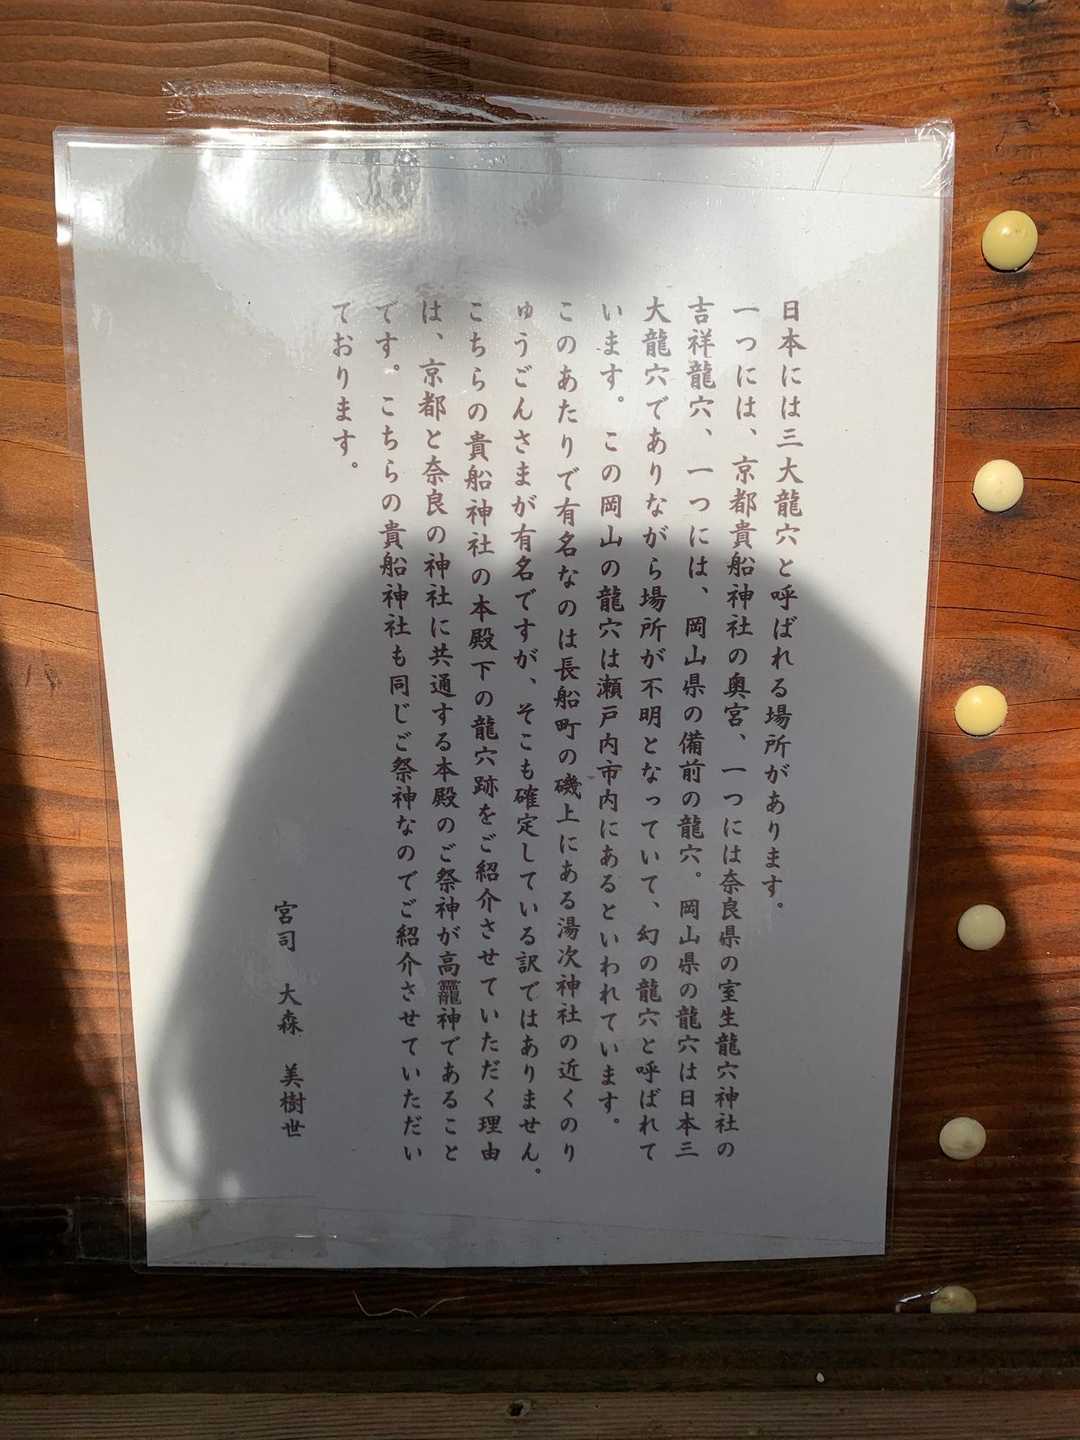 日本には三大龍穴と呼ばれる場所があります。
一つには、京都貴船神社の奥宮、一つには奈良県の室生龍穴神社の
吉祥龍穴、一つには、岡山県の備前の龍穴。岡山県の龍穴は日本三
大龍穴でありながら場所が不明となっていて、幻の龍穴と呼ばれて
います。この岡山の龍穴は瀬戸内市内にあるといわれています。
このあたりで有名なのは長船町の磯上にある湯次神社の近くのり
ゅうごんさまが有名ですが、そこも確定している訳ではありません。
こちらの貴船神社の本殿下の龍穴跡をご紹介させていただく理由
は、京都と奈良の神社に共通する本殿のご祭神が高龗神であること
です。こちらの貴船神社も同じご祭神なのでご紹介させていただい
ております。
宮司 大森 美樹世